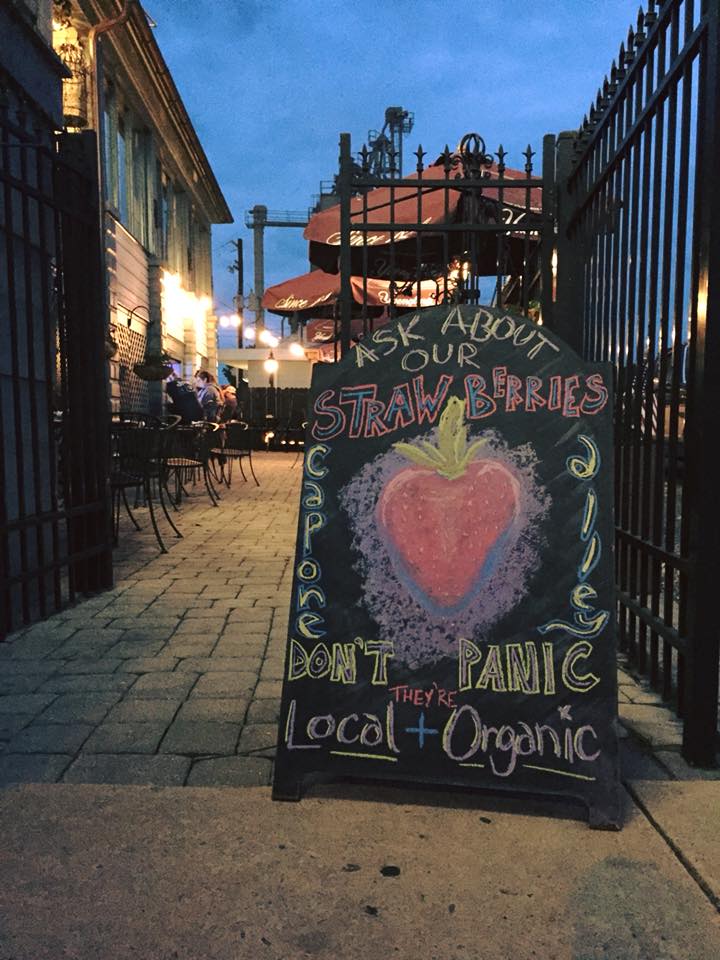 Since
Since
ASK ABOUT
OUR
STRAWBERRIES
Capone
alley
DON'T PANIC
THEY'RE
Local + Organic